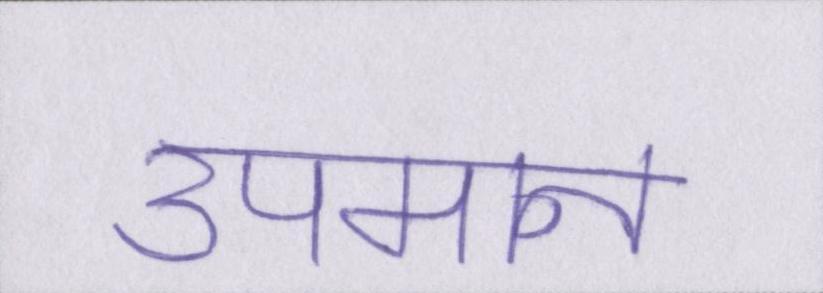 उपमान